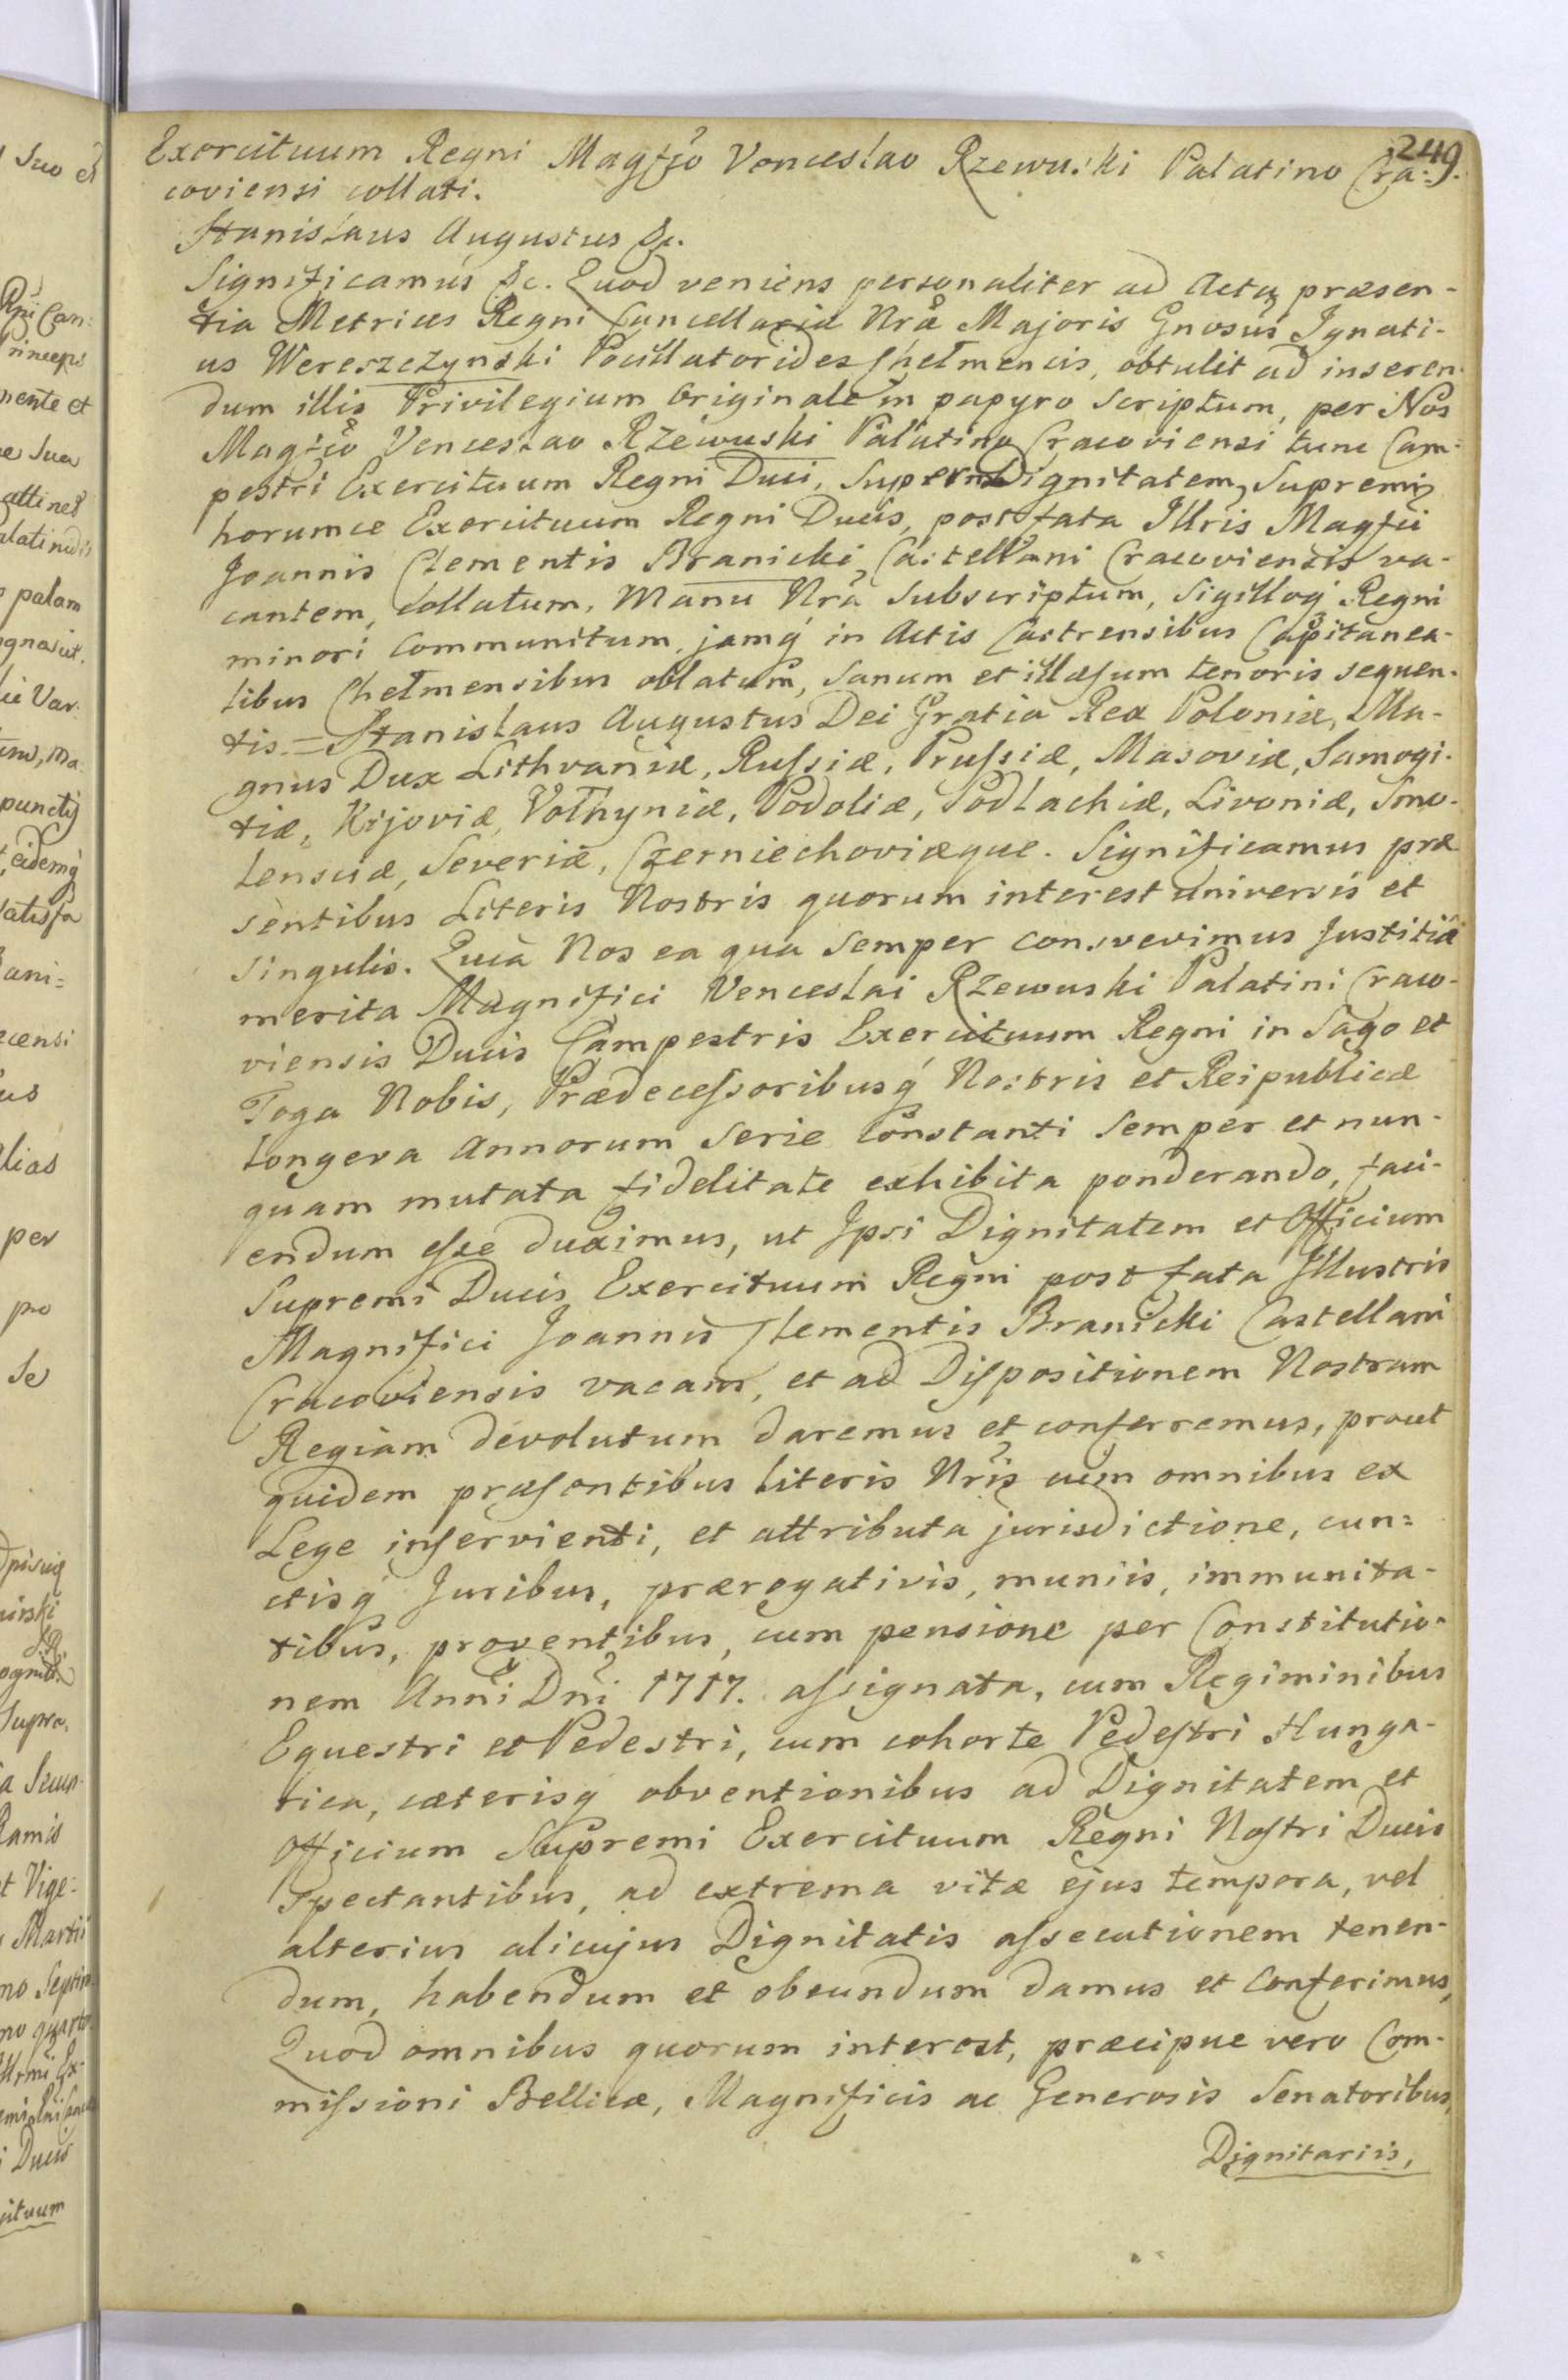 249.
Exercituum Regni Magfco Venceslao Rzewuski Palatino Cra-
coviensi collati.
Stanislaus Augustus &c.
Significamus &c. Quod veniens personaliter ad Acta præsen-
tia Metrices Regni Cancellariæ Nræ Majoris Gnosus Ignati-
us Wereszczynski Pocillatorides Chełmensis, obtulit ad inseren-
dum illis Privilegium Originale in papyro Scriptum, per Nos
Magfco Venceslao Rzewuski Palatino Cracoviensi tunc Cam-
pestri Exercituum Regni Duci, Super Dignitatem Supremi
horumce Exercituum Regni Ducis, post fata Illris Magfci
Joannis Clementis Branicki, Castellani Cracoviensis va-
cantem, Collatum, Manu Nrâ Subscriptum, Sigilloq Regni
minori Communitum, jamq in Actis Castrensibus Capitanea-
libus Chełmensibus oblatum, Sanum et illæsum tenoris sequen-
tis = Stanislaus Augustus Dei Gratia Rex Poloniæ, Ma-
gnus Dux Lithvaniæ, Russiæ, Prussiæ, Masoviæ, Samogi-
tiæ, Kijoviæ, Volhyniæ, Podoliæ, Podlachiæ, Livoniæ, Smo-
lensciæ, Severiæ, Czerniechoviæque. Significamus præ
sentibus Literis Nostris quorum interest universis et
Singulis. Quia Nos ea qua Semper consvevimus Justitiâ
merita Magnifici Venceslai Rzewuski Palatini Craco-
viensis Ducis Campestris Exercituum Regni in Sago et
Toga Nobis, Prædecessoribusq Nostris et Reipublicæ
Longeva Annorum Serie Constanti Semper et nun-
quam mutata fidelitate exhibita ponderando, faci-
endum esse duximus, ut Ipsi Dignitatem et Officium
Supremi Ducis Exercituum Regni post fata Illustris
Magnifici Joannis Clementis Branicki Castellani
Cracoviensis vacans, et ad Dispositionem Nostram
Regiam devolutum daremus et conferremus, prout
quidem præsentibus Literis Nris cum omnibus ex
Lege inservienti, et attributa jurisdictione, cun=
ctisq Juribus, prærogativis, muniis, immunita-
tibus, proventibus, cum pensione per Constitutio-
nem Anni Dni 1717. assignata, cum Regiminibus
Equestri et Pedestri, cum cohorte Pedestri Hunga-
rica, cæterisq obventionibus ad Dignitatem et
Officium Supremi Exercituum Regni Nostri Ducis
Spectantibus, ad extrema vitæ ejus tempora, vel
alterius alicujus Dignitatis assecutionem tenen-
dum, habendum et obeundum damus et Conferimus,
Quod omnibus quorum interest, præcipue vero Com-
missioni Bellicæ, Magnificis ac Generosis Senatoribus,
Dignitariis,